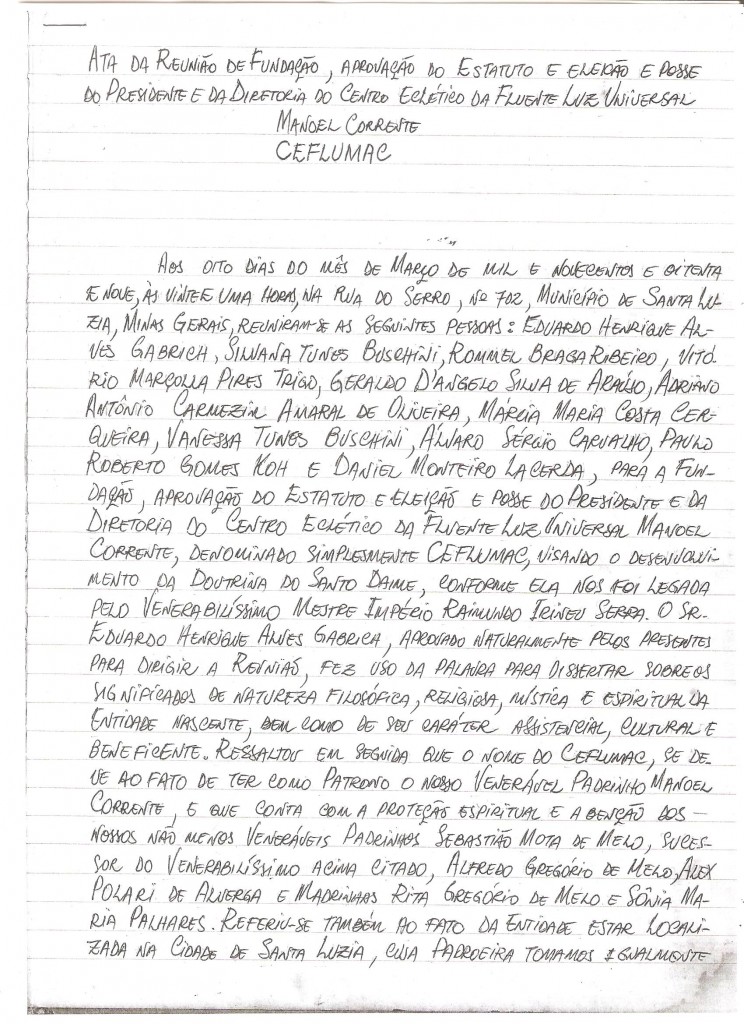 ATA DA REUNIÃO DE FUNDAÇÃO, APROVAÇÃO DO ESTATUTO E ELEIÇÃO E POSSE
DO PRESIDENTE E DA DIRETORIA DO CENTRO ECLÉTICO DA FLUENTE LUZ UNIVERSAL
MANOEL CORRENTE
CEFLUMAC
AOS OITO DIAS DO MÊS DE MARÇO DE MIL E NOVECENTOS E OITENTA
E NOVE, ÀS VINTE E UMA HORAS, NA RUA DO SERRO, Nº 702, MUNICÍPIO DE SANTA LU-
ZIA, MINAS GERAIS, REUNIRAM-SE AS SEGUINTES PESSOAS: EDUARDO HENRIQUE AL-
VES GABRICH, SILVANA TUNES BUSCHINI, ROMMEL BRAGA RIBEIRO, VITÓ-
RIO MARÇOLLA PIRES TRIGO, GERALDO D'ANGELO SILVA DE ARAÚJO, ADRIANO
ANTÔNIO CARMEZIM AMARAL DE OLIVEIRA, MÁRCIA MARIA COSTA CER-
QUEIRA, VANESSA TUNES BUSCHINI, ÁLVARO SÉRGIO CARVALHO, PAULO
ROBERTO GOMES KOH E DANIEL MONTEIRO LACERDA, PARA A FUN-
DAÇÃO, APROVAÇÃO DO ESTATUTO E ELEIÇÃO E POSSE DO PRESIDENTE E DA
DIRETORIA DO CENTRO ECLÉTICO DA FLUENTE LUZ UNIVERSAL MANOEL
CORRENTE, DENOMINADO SIMPLESMENTE CEFLUMAC, VISANDO O DESENVOLVI-
MENTO DA DOUTRINA DO SANTO DAIME, CONFORME ELA NOS FOI LEGADA
PELO VENERABILÍSSIMO MESTRE IMPÉRIO RAIMUNDO IRINEU SERRA. O SR.
EDUARDO HENRIQUE ALVES GABRICH, APROVADO NATURALMENTE PELOS PRESENTES
PARA DIRIGIR A REUNIÃO, FEZ USO DA PALAVRA PARA DISSERTAR SOBRE OS
SIGNIFICADOS DE NATUREZA FILOSÓFICA, RELIGIOSA, MÍSTICA E ESPIRITUAL DA
ENTIDADE NASCENTE, BEM COMO DE SEU CARÁTER ASSISTENCIAL, CULTURAL E
BENEFICENTE. RESSALTOU EM SEGUIDA QUE O NOME DO CEFLUMAC, SE DE-
VE AO FATO DE TER COMO PATRONO O NOSSO VENERÁVEL PADRINHO MANOEL
CORRENTE, E QUE CONTA COM A PROTEÇÃO ESPIRITUAL E A BENÇÃO DOS -
NOSSOS NÃO MENOS VENERÁVEIS PADRINHOS SEBASTIÃO MOTA DE MELO, SUCES-
SOR DO VENERABILÍSSIMO ACIMA CITADO, ALFREDO GREGÓRIO DE MELO, ALEX
POLARI DE ALVERGA E MADRINHAS RITA GREGÓRIO DE MELO E SÔNIA MA-
RIA PALHARES. REFERIU-SE TAMBÉM AO FATO DA ENTIDADE ESTAR LOCALI-
ZADA NA CIDADE DE SANTA LUZIA, CUJA PADROEIRA TOMAMOS IGUALMENTE